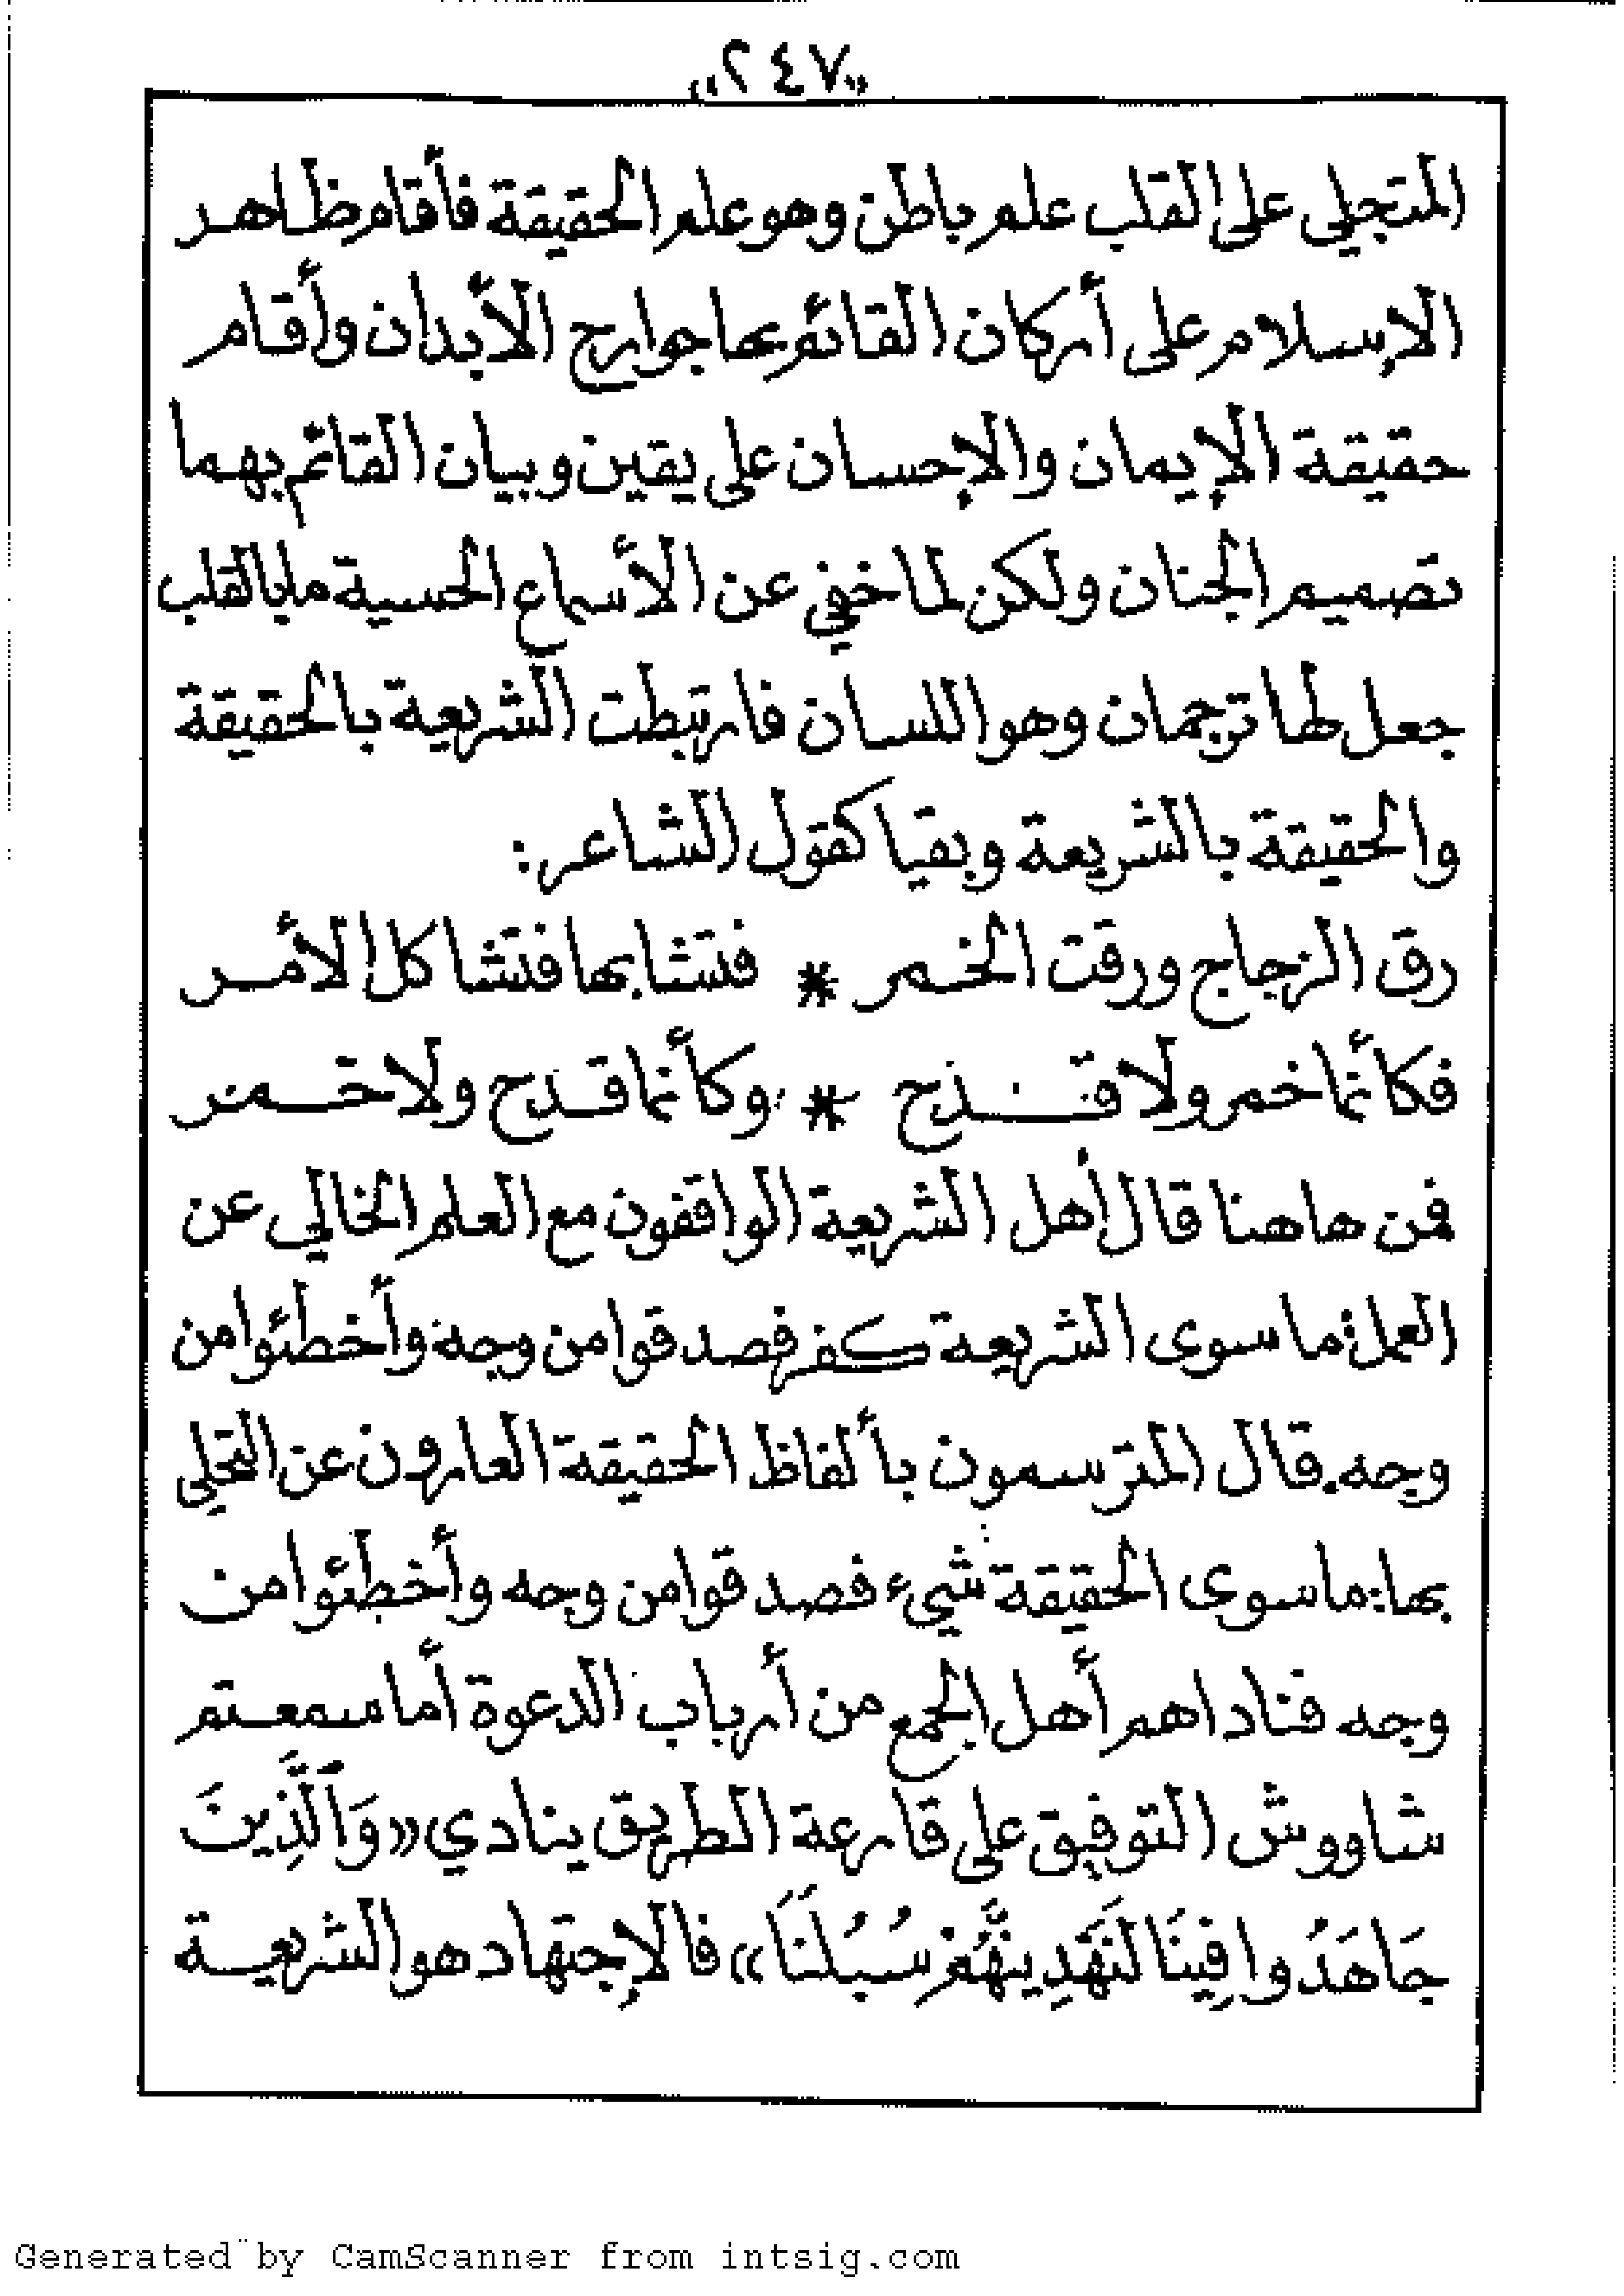 «٢٤٧»
المتجلي على القلب علم باطن وهو علم الحقيقة فأقام ظاهر
الإسلام على أركان القائم بها جوارح الأبدان وأقام
حقيقة الإيمان والإحسان على يقين وبيان القائم بهما
تصميم الجنان ولكن لما خفي عن الأسماع الحسية ما بالقلب
جعل لها ترجمان وهو اللسان فارتبطت الشريعة بالحقيقة
والحقيقة بالشريعة وبقيا كقول الشاعر:
رق الزجاج ورقت الخمر * فتشابها فتشاكل الأمر
فكأنما خمر ولا قدح * وكأنما قدح ولا خمر
فمن هاهنا قال أهل الشريعة الواقفون مع العلم الخالي عن
العمل: ما سوى الشريعة كفر فصدقوا من وجه وأخطئوا من
وجه. قال المترسمون بألفاظ الحقيقة العارون عن التحلي
بها: ما سوى الحقيقة شيء فصدقوا من وجه وأخطئوا من
وجه فناداهم أهل الجمع من أرباب الدعوة أما سمعتم
شاووش التوفيق على قارعة الطريق ينادي «وَالَّذِينَ
جَاهَدُوا فِينَا لَنَهْدِيَنَّهُمْ سُبُلَنَا» فالإجتهاد هو الشريعة
Generated by CamScanner from intsig.com